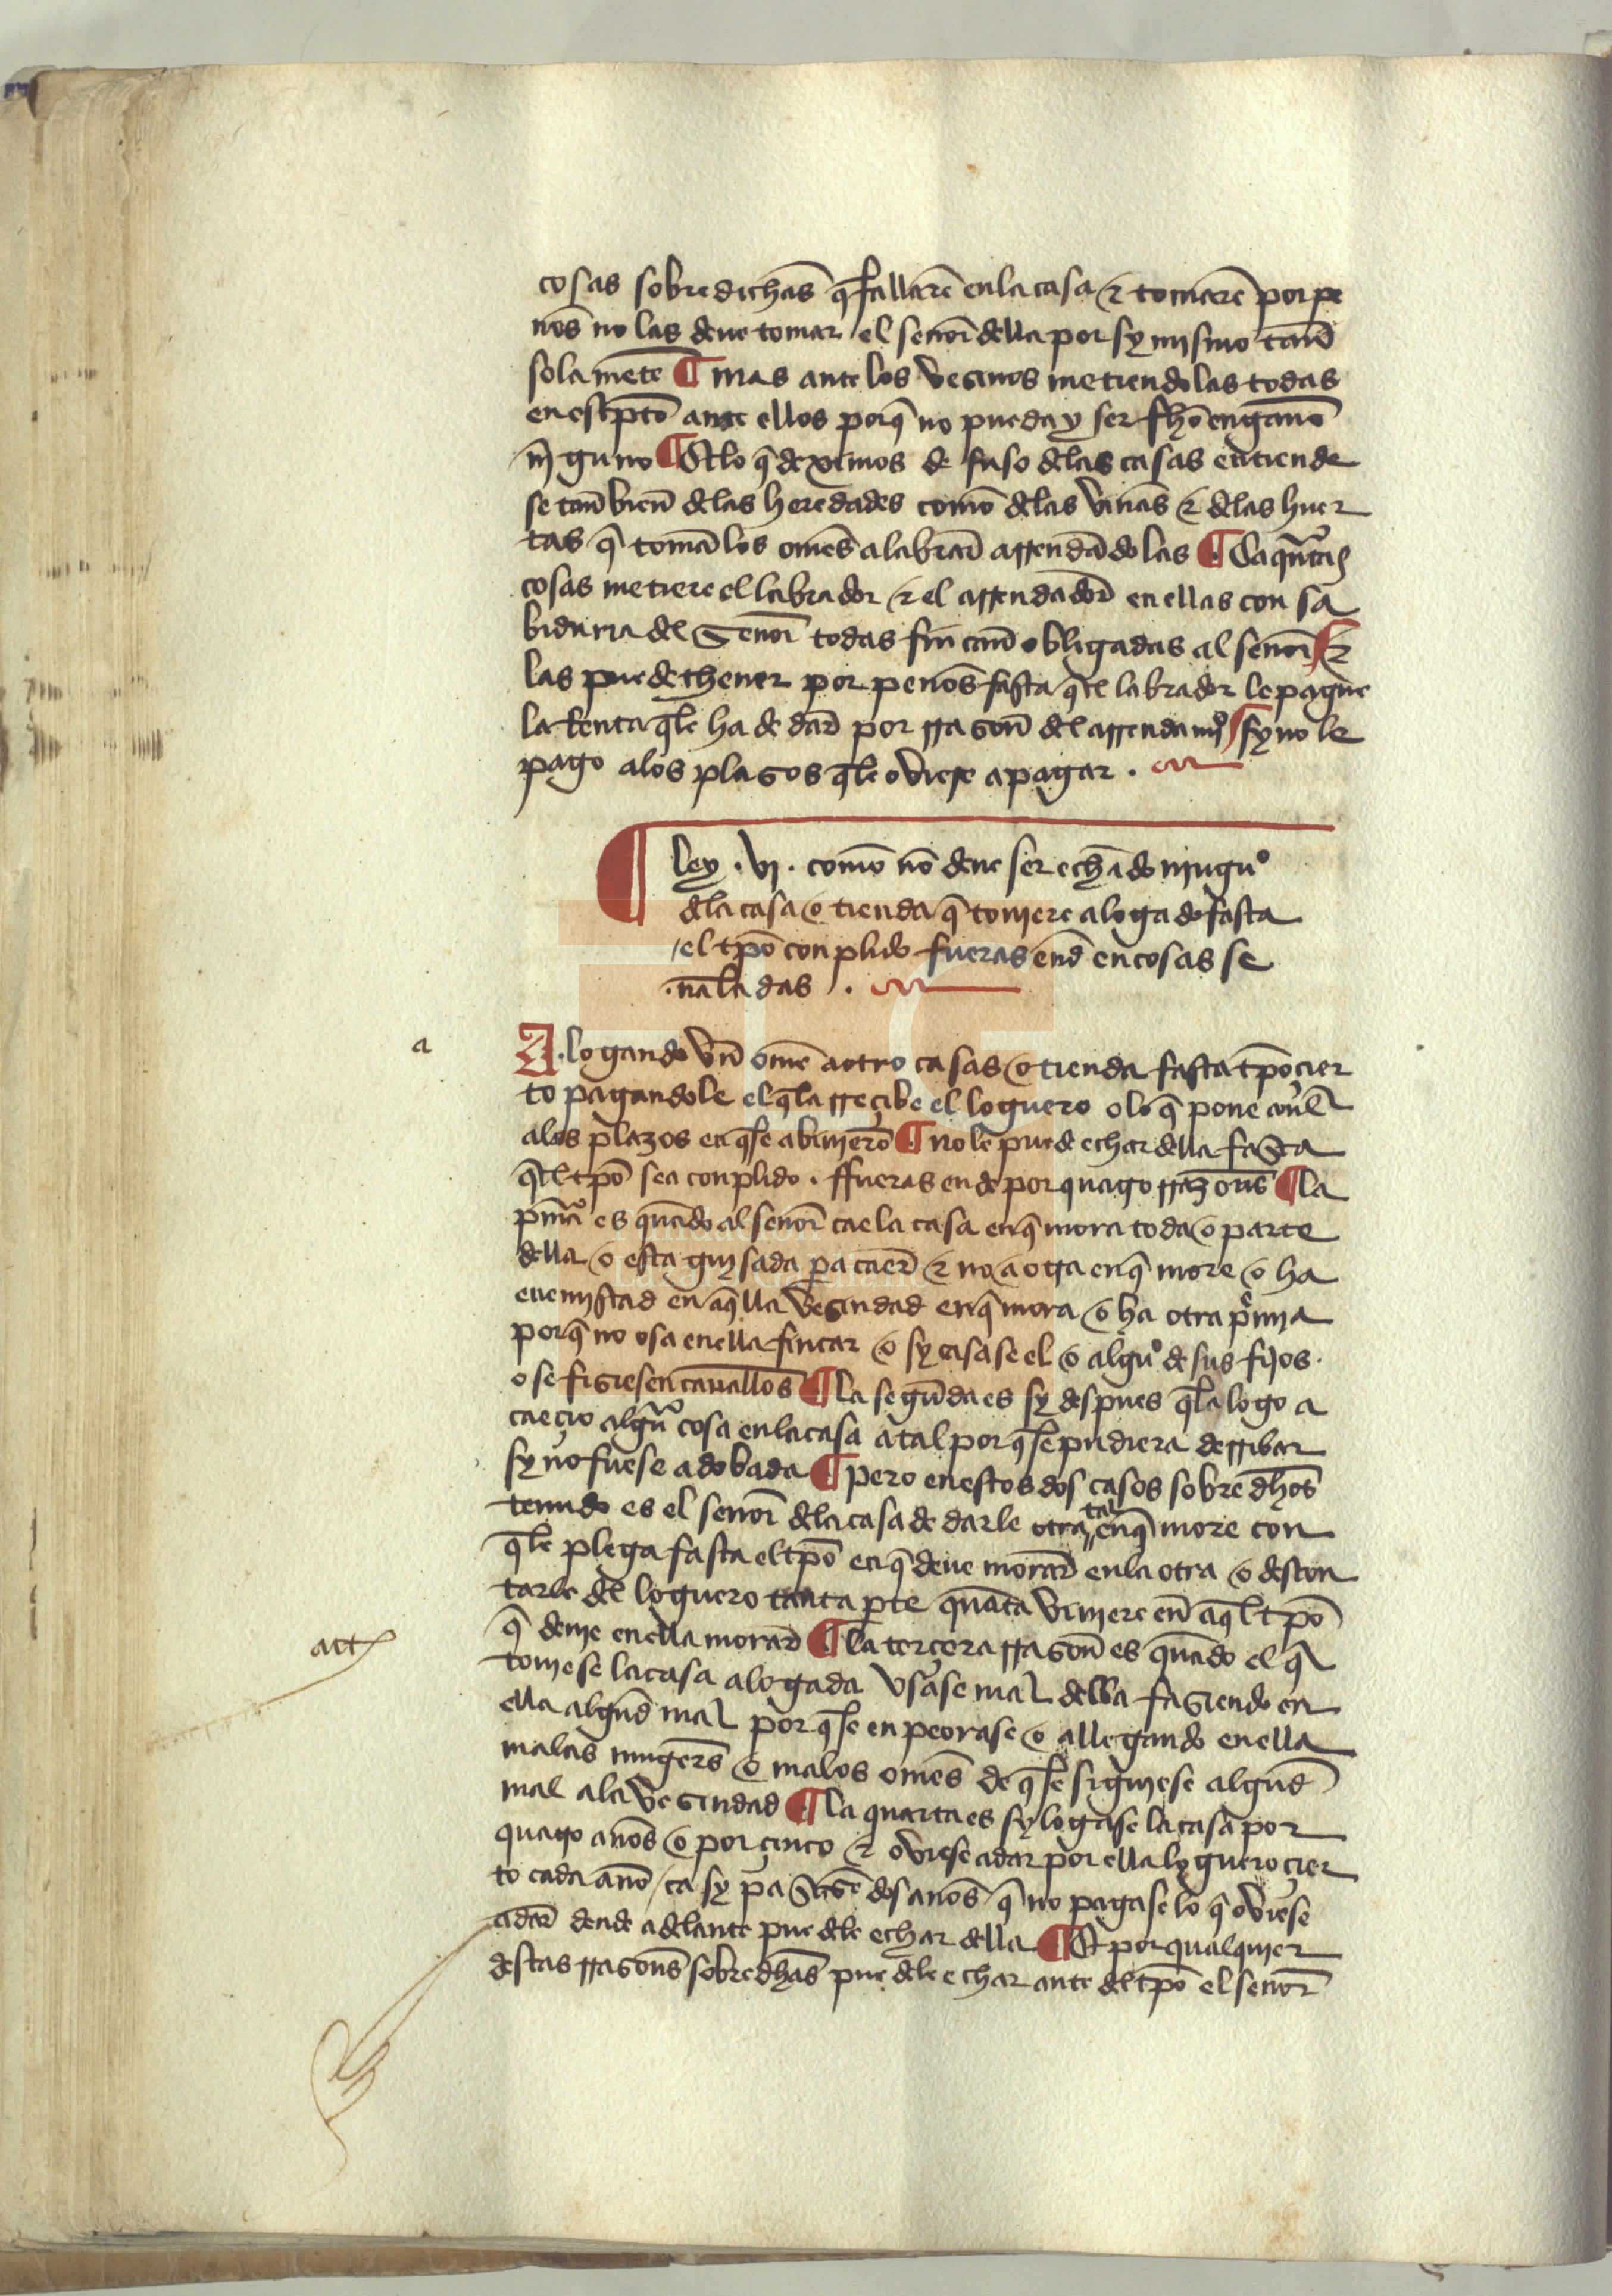 cosas sobredichas̄ q̄ fallarē enla casa ⁊ tomarē por pe
nos̄ no las deue tomar el señor della por sy mismo tan̄
sola mēte ¶ mas ante los vesinos metiendo las todas
en escpto ante ellos porq̄ no pueda y ser fho engano
nīguno ¶ Et lo q̄ deximos de suso delas casas entiende
se tan̄ bien̄ delas heredades como delas vinas ⁊ delas huer
tas q̄ toman̄ los omes̄ a labrar arrendādo las ¶ Ca quātas
cosas metiere el labrador ⁊ el arrendador en ellas con sa
biduria del Senor todas fincan̄ obligadas al senor ⁊
las puede thener por penos̄ fasta q̄ el labrador le pague
la Renta q̄le ha de dar por rrason̄ del arrendamio sy no le
pago alos plasos q̄le oviese a pagar .
¶ ley . vi . como nō deue ser echādo ningu°
dela casa o tienda q̄ touiere alogado fasta
el tpō conplido fueras end̄ en cosas se
naladas .
a
A logando vn̄ ome a otro casas o tienda fasta tpō çier
to pagandole el q̄ la rreçibe el loguero o lo q̄ pone con̄l
alos plazos en q̄ se abinierō ¶ no le puede echar della fasta
q̄ el tpō sea conplido . ffueras ende por quatro rrazons̄ ¶ la
pmā es quādo al senor cae la casa en q̄ mora toda o parte
della o esta guisada pa caer ⁊ no a otra en q̄ more o ha
enemistad en aq̄lla vesindad en q̄ mora o ha otra pmia
porq̄ no osa en ella fincar o sy casase el o algu° de sus fijos .
o se fisiesen caualloṣ̄ ¶ la segūda es sy despues q̄ la logo a
caeçio algua cosa enla casa atal por q̄ se pudiera derribar
sy no fuese adobada ¶ pero en estos dos casos sobre dhos̄
tenudo es el senor dela casa de darle otra tal en q̄ more con
q̄ le plega fasta el tpō en q̄ deue morar enla otra o descon
tarle del loguero tanta pte quāta viniere en̄ aq̄l tpō
q̄ deuie en ella morar ¶ la terçera rrason̄ es quādo el q̄
touiese la casa alogada vsase mal della fasiendo en
ella algund̄ mal por q̄ se enpeorase o allegando en ella
malas mugers̄ o malos omes̄ de q̄ se siguiese algund̄
mal ala vesindad ¶ la quarta es sy logase la casa por
quatro anos̄ o por çinco ⁊ oviese a dar por ella loguero çier
to cada ano / ca sy pasasē dos anos̄ q̄ no pagase lo q̄ oviese
a dar dende adelante puedele echar della ¶ Et por qualquier
destas rrasons̄ sobredhas̄ puedele echar ante del tpō el senor